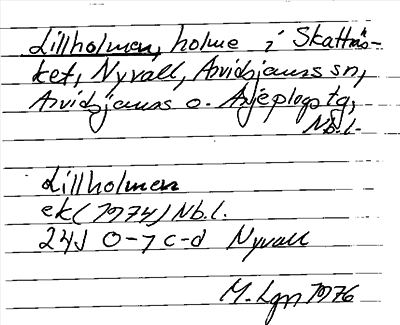 Lillholmen, holme i Skatträs-
ket, Nyvall, Arvidsjaurs sn,
Arvidsjaurs o. Arjeplogs tg,
Nb.l.
Lillholmen
ek (1974) Nb.l.
24J 0-7 c-d Nyvall
M. Lgn 1976